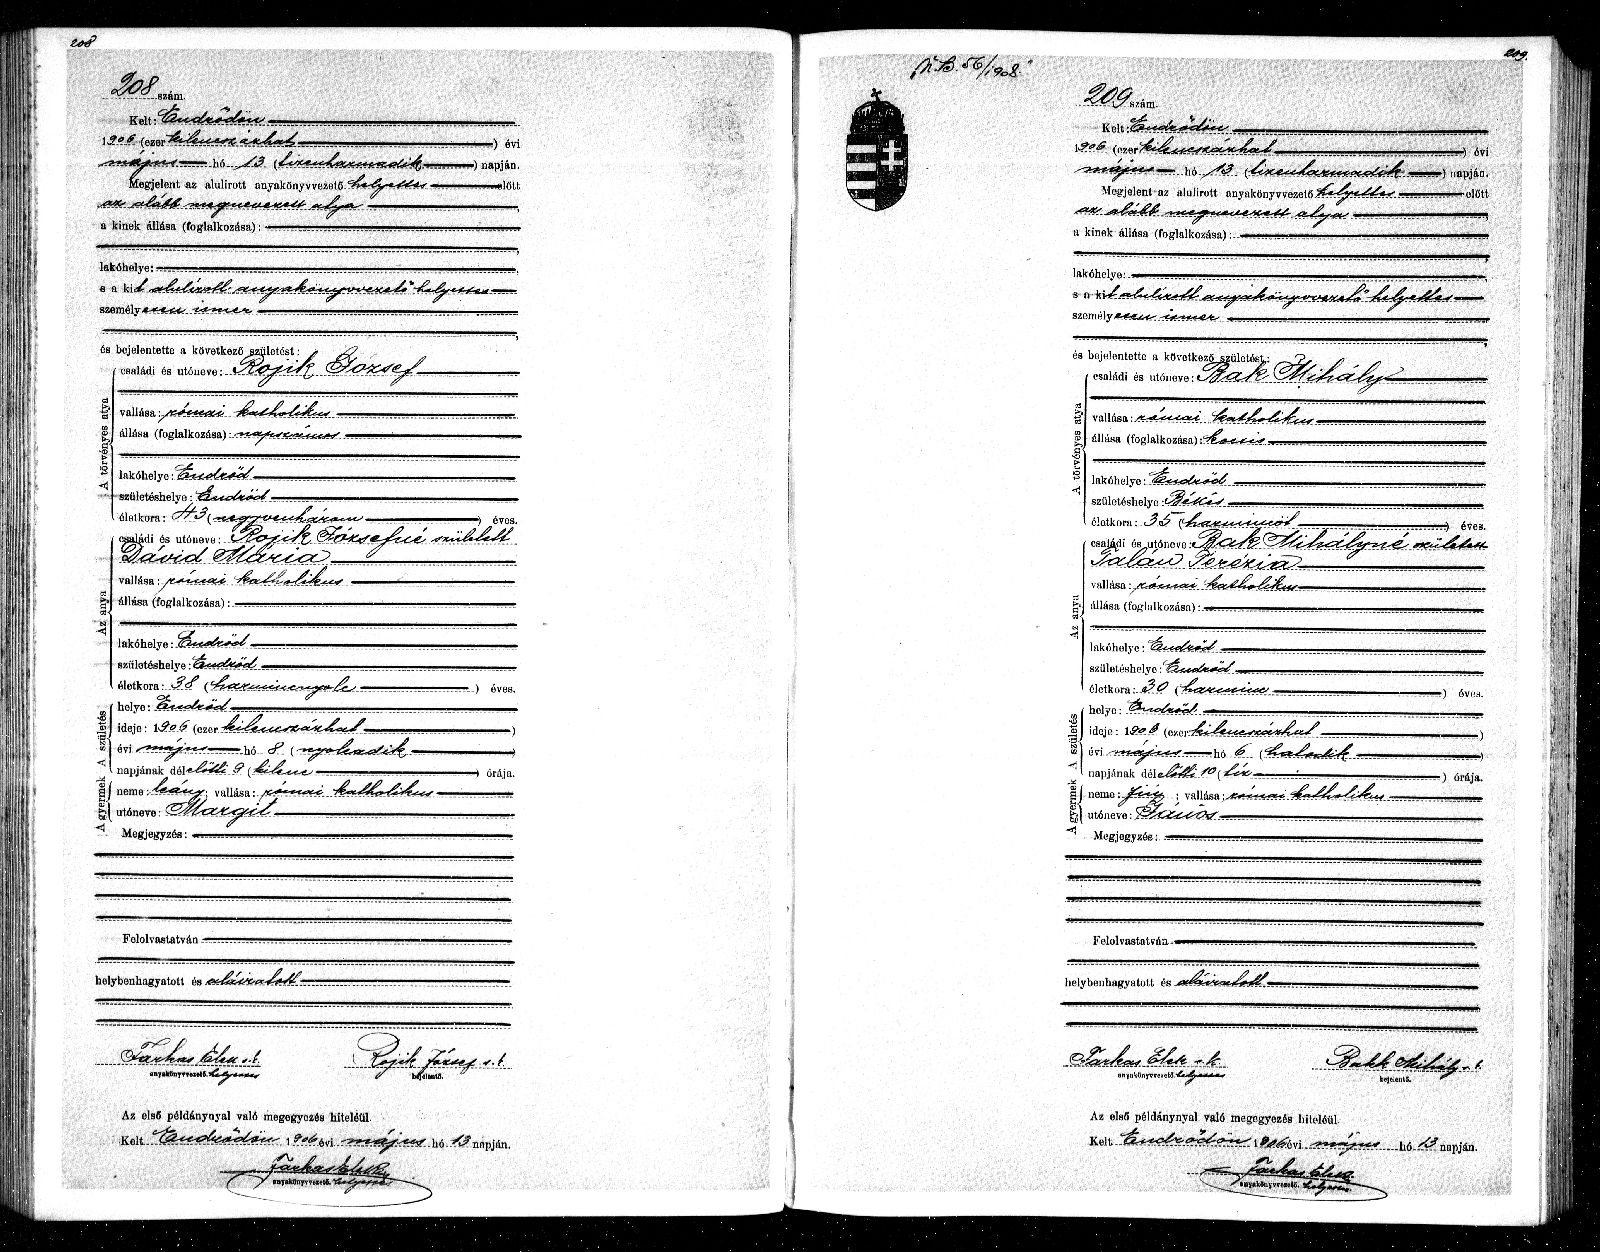 208
208 szám.
Kelt: Endrődön
1906 (ezer kilencszázhat) évi
május hó 13 (tizenharmadik) napján.
Megjelent az alulirott anyakönyvvezető helyettes előtt
az alább megnevezett atya
a kinek állása (foglalkozása):
lakóhelye:
s a kit alulirott anyakönyvvezető helyettes
személyesen ismer
és bejelentette a következő születést:
A törvényes atya
családi és utóneve: Rojik József
vallása: római katholikus
állása (foglalkozása): napszámos
lakóhelye: Endrőd
születéshelye: Endrőd
életkora: 43 (negyvenhárom) éves.
Az anya
családi és utóneve: Rojik Józsefné született
Dávid Mária
vallása: római katholikus
állása (foglalkozása):
lakóhelye: Endrőd
születéshelye: Endrőd
életkora: 38 (harmincnyolc) éves.
A születés
helye: Endrőd
ideje: 1906 (ezer kilencszázhat)
évi május hó 8 (nyolcadik)
napjának délelőtti 9 (kilenc) órája.
A gyermek
neme: leány; vallása: római katholikus
utóneve: Margit
Megjegyzés:
Felolvastatván
helybenhagyatott és aláiratott
Farkas Elek s.k. Rojik József s.k.
anyakönyvvezető. helyettes bejelentő.
Az első példánynyal való megegyezés hiteléül.
Kelt Endrődön 1906 évi május hó 13 napján.
Farkas Elek
anyakönyvvezető. helyettes
209.
"N.B. 56/1908."
209 szám.
Kelt: Endrődön
1906 (ezer kilencszázhat) évi
május hó 13. (tizenharmadik) napján.
Megjelent az alulirott anyakönyvvezető helyettes előtt
az alább megnevezett atya
a kinek állása (foglalkozása):
lakóhelye:
s a kit alulirott anyakönyvvezető helyettes
személyesen ismer
és bejelentette a következő születést:
A törvényes atya
családi és utóneve: Bak Mihály
vallása: római katholikus
állása (foglalkozása): kocsis
lakóhelye: Endrőd
születéshelye: Békés
életkora: 35 (harmincöt) éves.
Az anya
családi és utóneve: Bak Mihályné született
Talán Terézia
vallása: római katholikus
állása (foglalkozása):
lakóhelye: Endrőd
születéshelye: Endrőd
életkora: 30 (harminc) éves.
A születés
helye: Endrőd
ideje: 1906 (ezer kilencszázhat)
évi május hó 6 (hatodik)
napjának délelőtti 10 (tíz) órája.
A gyermek
neme: fiú; vallása: római katholikus
utóneve: János
Megjegyzés:
Felolvastatván
helybenhagyatott és aláiratott
Farkas Elek s.k. Bakk Mihály s.k.
anyakönyvvezető. helyettes bejelentő.
Az első példánynyal való megegyezés hiteléül.
Kelt Endrődön 1906 évi május hó 13 napján.
Farkas Elek
anyakönyvvezető. helyettes